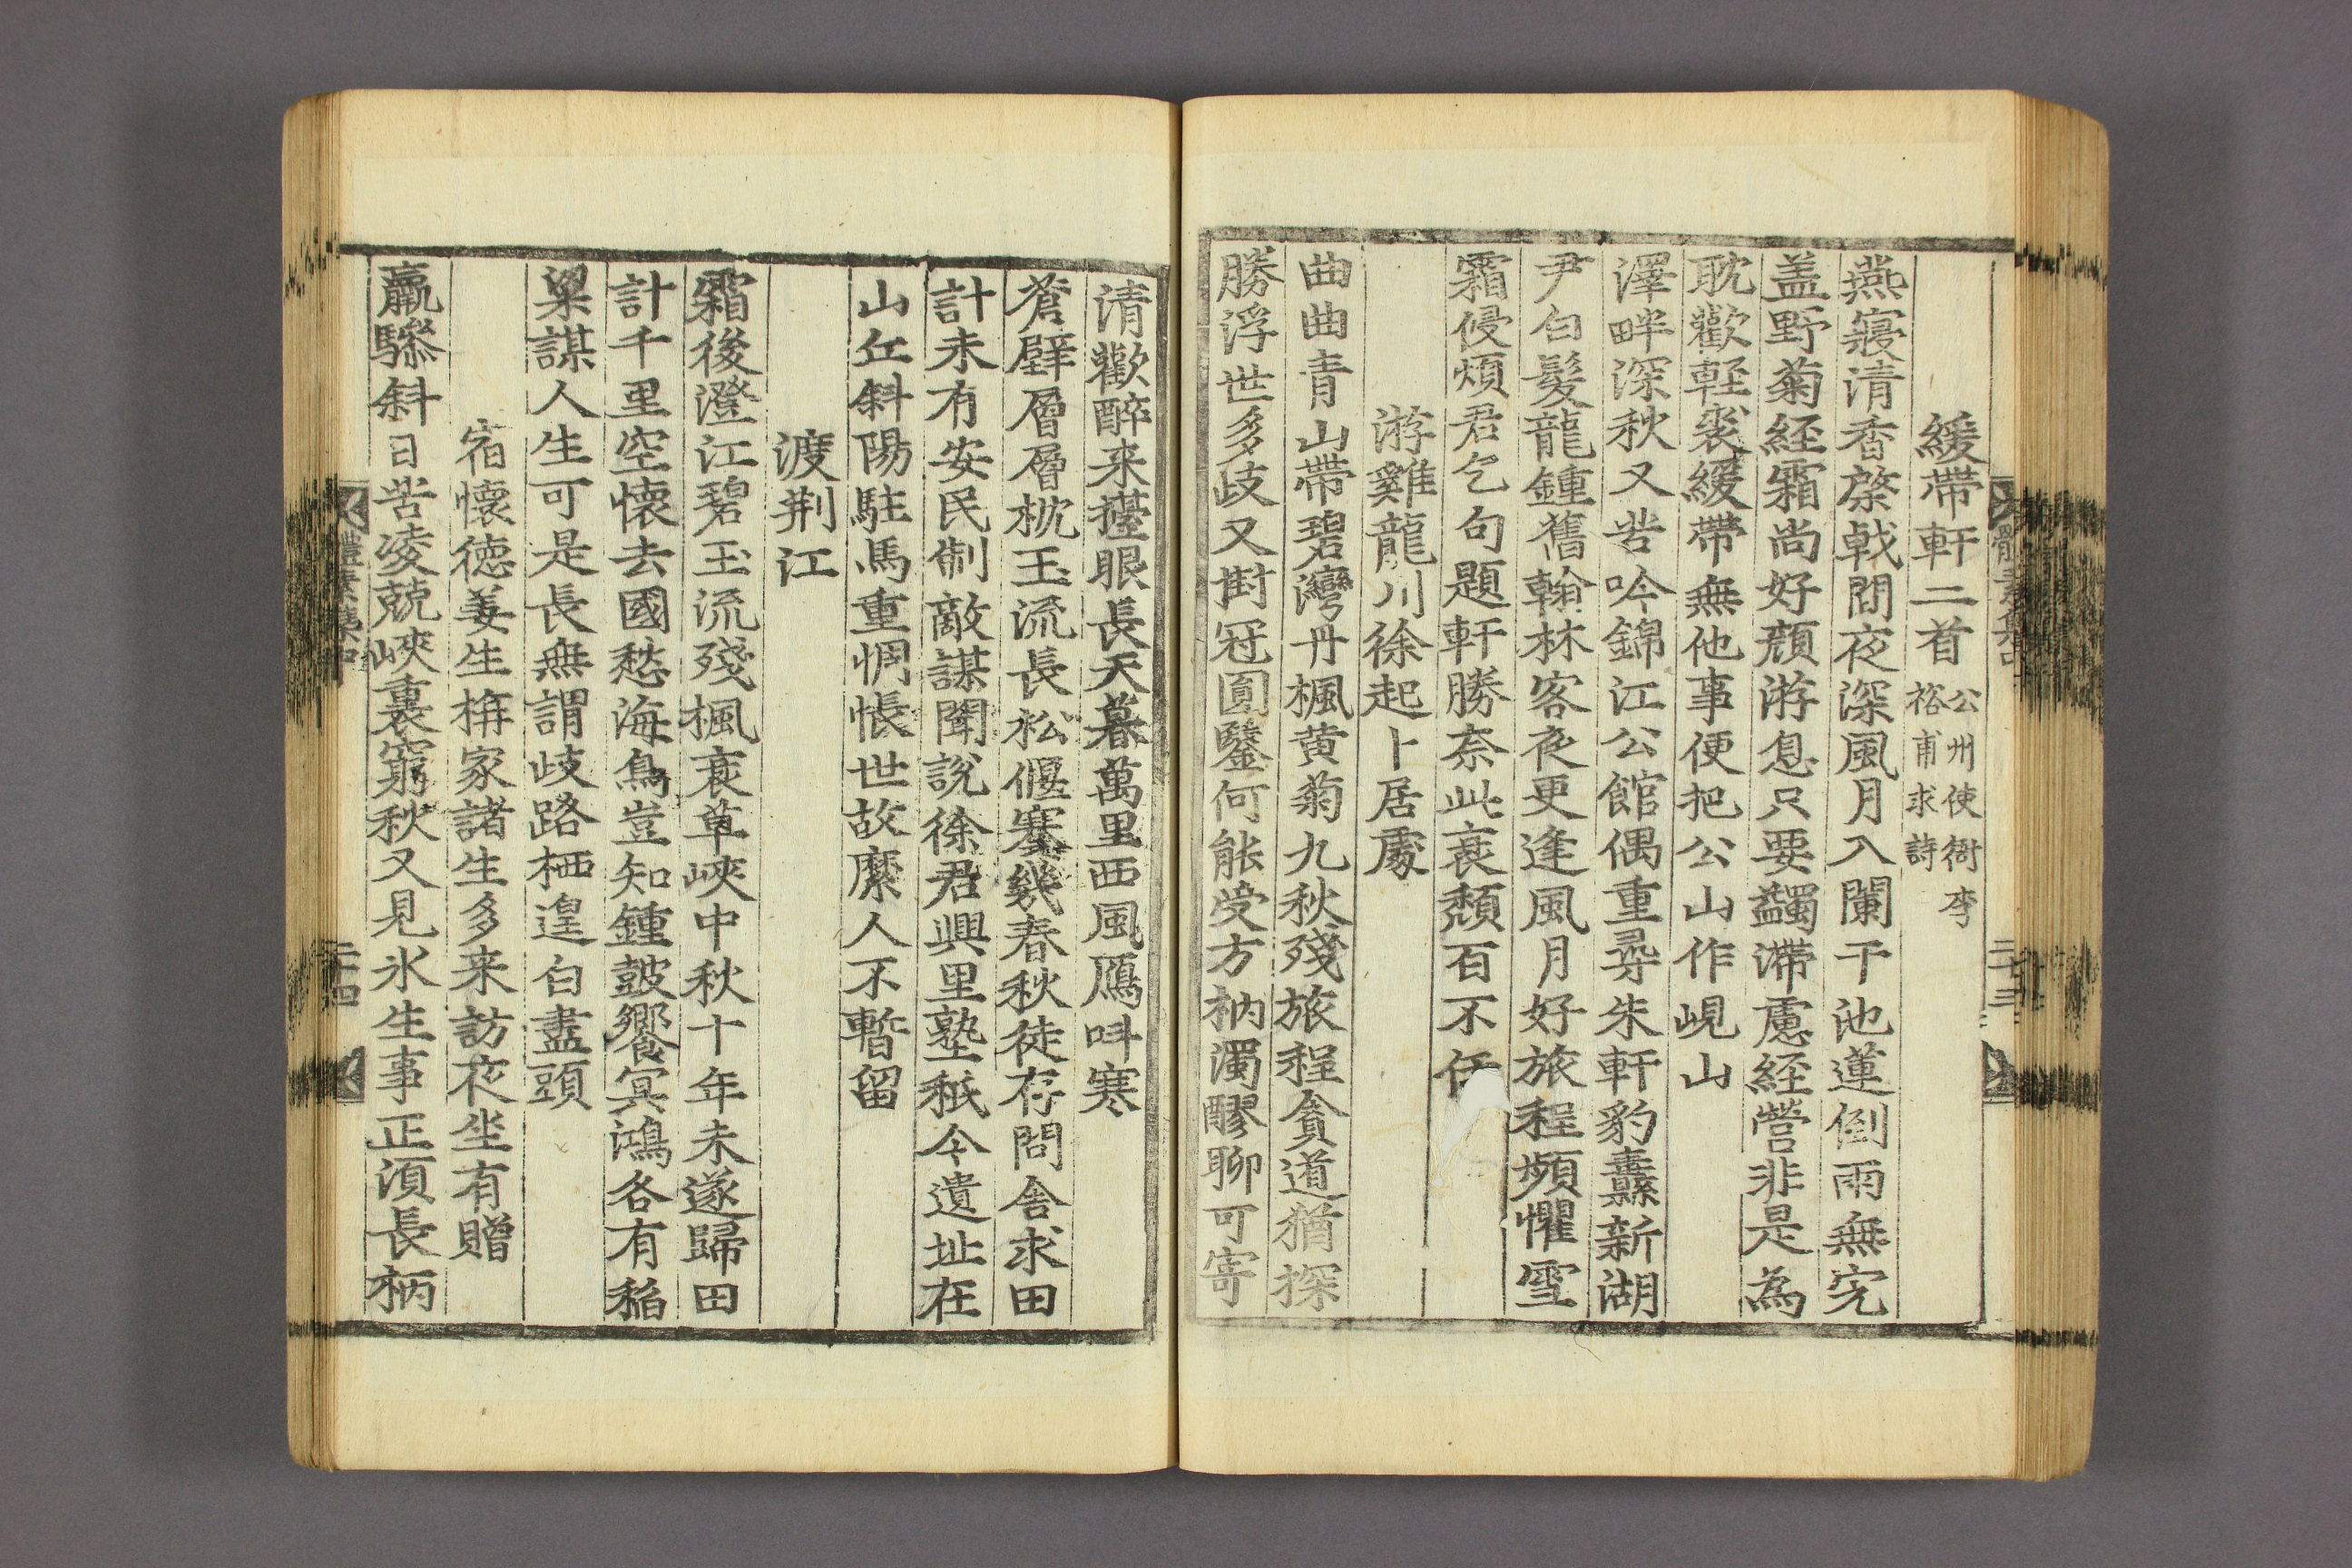 緩帶軒二首 公州使衙李裕甫求詩
燕寢清香棨戟間夜深風月入闌干池蓮倒雨無完
盖野菊經霜尚好顔游息只要蠲滯慮經營非是為
耽歡軽裘緩帶無他事便把公山作峴山
澤畔深秋又苦吟錦江公館偶重尋朱軒豹纛新湖
尹白髮龍鍾舊翰林客夜更逢風月好旅程頻懼雪
霜侵煩君乞句題軒勝奈此衰頽百不任
游雞龍川徐起卜居處
曲曲青山帶碧灣丹楓黄菊九秋殘旅程貪道猶探
勝浮世多歧又掛冠圓鑿何能受方枘濁醪聊可寄
清歡醉来擡眼長天暮萬里西風鴈呌寒
蒼壁層層枕玉流長松偃蹇幾春秋徒存問舎求田
計未有安民制敵謀聞說徐君興里塾秖今遺址在
山丘斜陽駐馬重惆悵世故縻人不暫留
渡荆江
霜後澄江碧玉流殘楓衰草峽中秋十年未遂歸田
計千里空懷去國愁海鳥豈知鍾鼓饗冥鴻各有稻
粱謀人生可是長無謂歧路栖遑白盡頭
宿懷德姜生栴家諸生多来訪夜坐有贈
羸驂斜日苦凌兢峽裏窮秋又見氷生事正湏長柄
體素集中
二十四